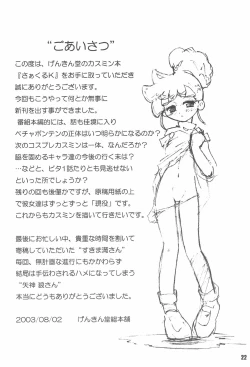 “ごあいさつ”
この度は、げんきん堂のカスミン本
『さぁくるK』をお手に取っていただき
誠にありがとうございます。
今回もこうやって何とか無事に
新刊を出す事ができました。
番組本編的には、悠も佳境に入り
ペチャポンテンの正体はいつ明らかになるのか?
次のコスプレカスミンは一体、なんだろう?
脇を固めるキャラ達の今後の行く末は?
…などと、ピタ1話たりとも見逃せない
といった所でしょうか?
残りの回も後僅かですが、原稿用紙の上
で彼女達はずっとずっと「現役」です。
これからもカスミンを描いて行きたいです。
最後にお忙しい中、貴重な時間を割いて
寄稿していただいた“すぎま満さん”
毎回、無計画な進行にもかかわらず
結局は手伝わされるハメになってしまう
“矢神 鋭さん”
本当にどうもありがとうございました。
2003/08/02 げんきん堂総本舗
22